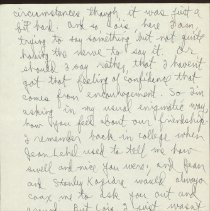 circumstances though it was just a
bit hard. And so Lois, here I am
trying to say something but not quite
having the nerve to say it. Or
should I say rather that I haven't
got that feeling of confidence that
comes from encouragement. So I'm
asking in my usual enigmatic way
how you feel about our friendship.
I remember back in college when
Jean used to tell me how
swell and nice you were, and Jean
and Stanley would always
coax me to ask you out and
But Lois I just wasn't